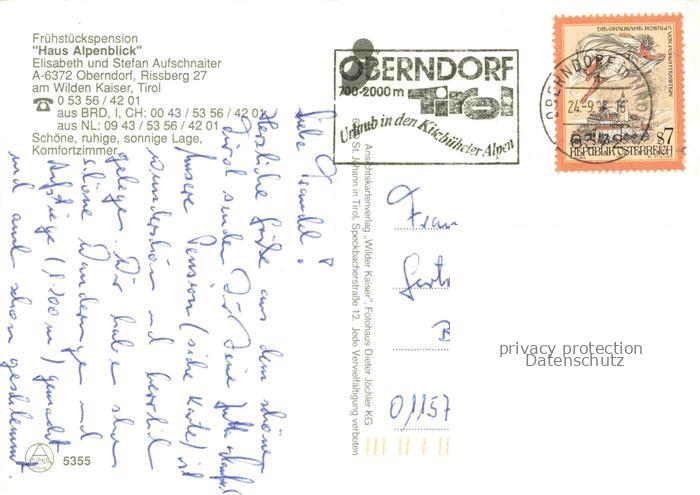 Frühstückspension
"Haus Alpenblick"
Elisabeth und Stefan Aufschnaiter
A-6372 Oberndorf, Rissberg 27
am Wilden Kaiser, Tirol
☎ 0 53 56 / 42 01
aus BRD, I, CH: 00 43 / 53 56 / 42 01
aus NL: 09 43 / 53 56 / 42 01
Schöne, ruhige, sonnige Lage,
Komfortzimmer
OBERNDORF
700-2000 m Tirol
Urlaub in den Kitzbüheler Alpen
DIE GRAUSAME ROSALIA
VON FORCHTENSTEIN
OBERNDORF in
24.-9.
S7
REPUBLIK ÖSTERREICH
Liebe
Herzliche Grüße aus dem schönen
Tirol senden Dir Deine Jutta
Unsere Pension (siehe Karte) ist
wunderschön und herrlich
gelegen. Wir haben schon
schöne Wanderungen und
Aufstiege (1200 m) gemacht
und auch schon geschlemmt.
Ansichtskartenverlag „Wilder Kaiser", Fotohaus Dieter Jöchler KG
St. Johann in Tirol, Speckbacherstraße 12. Jede Vervielfältigung verboten
Frau
B
01157
privacy protection
Datenschutz
5355